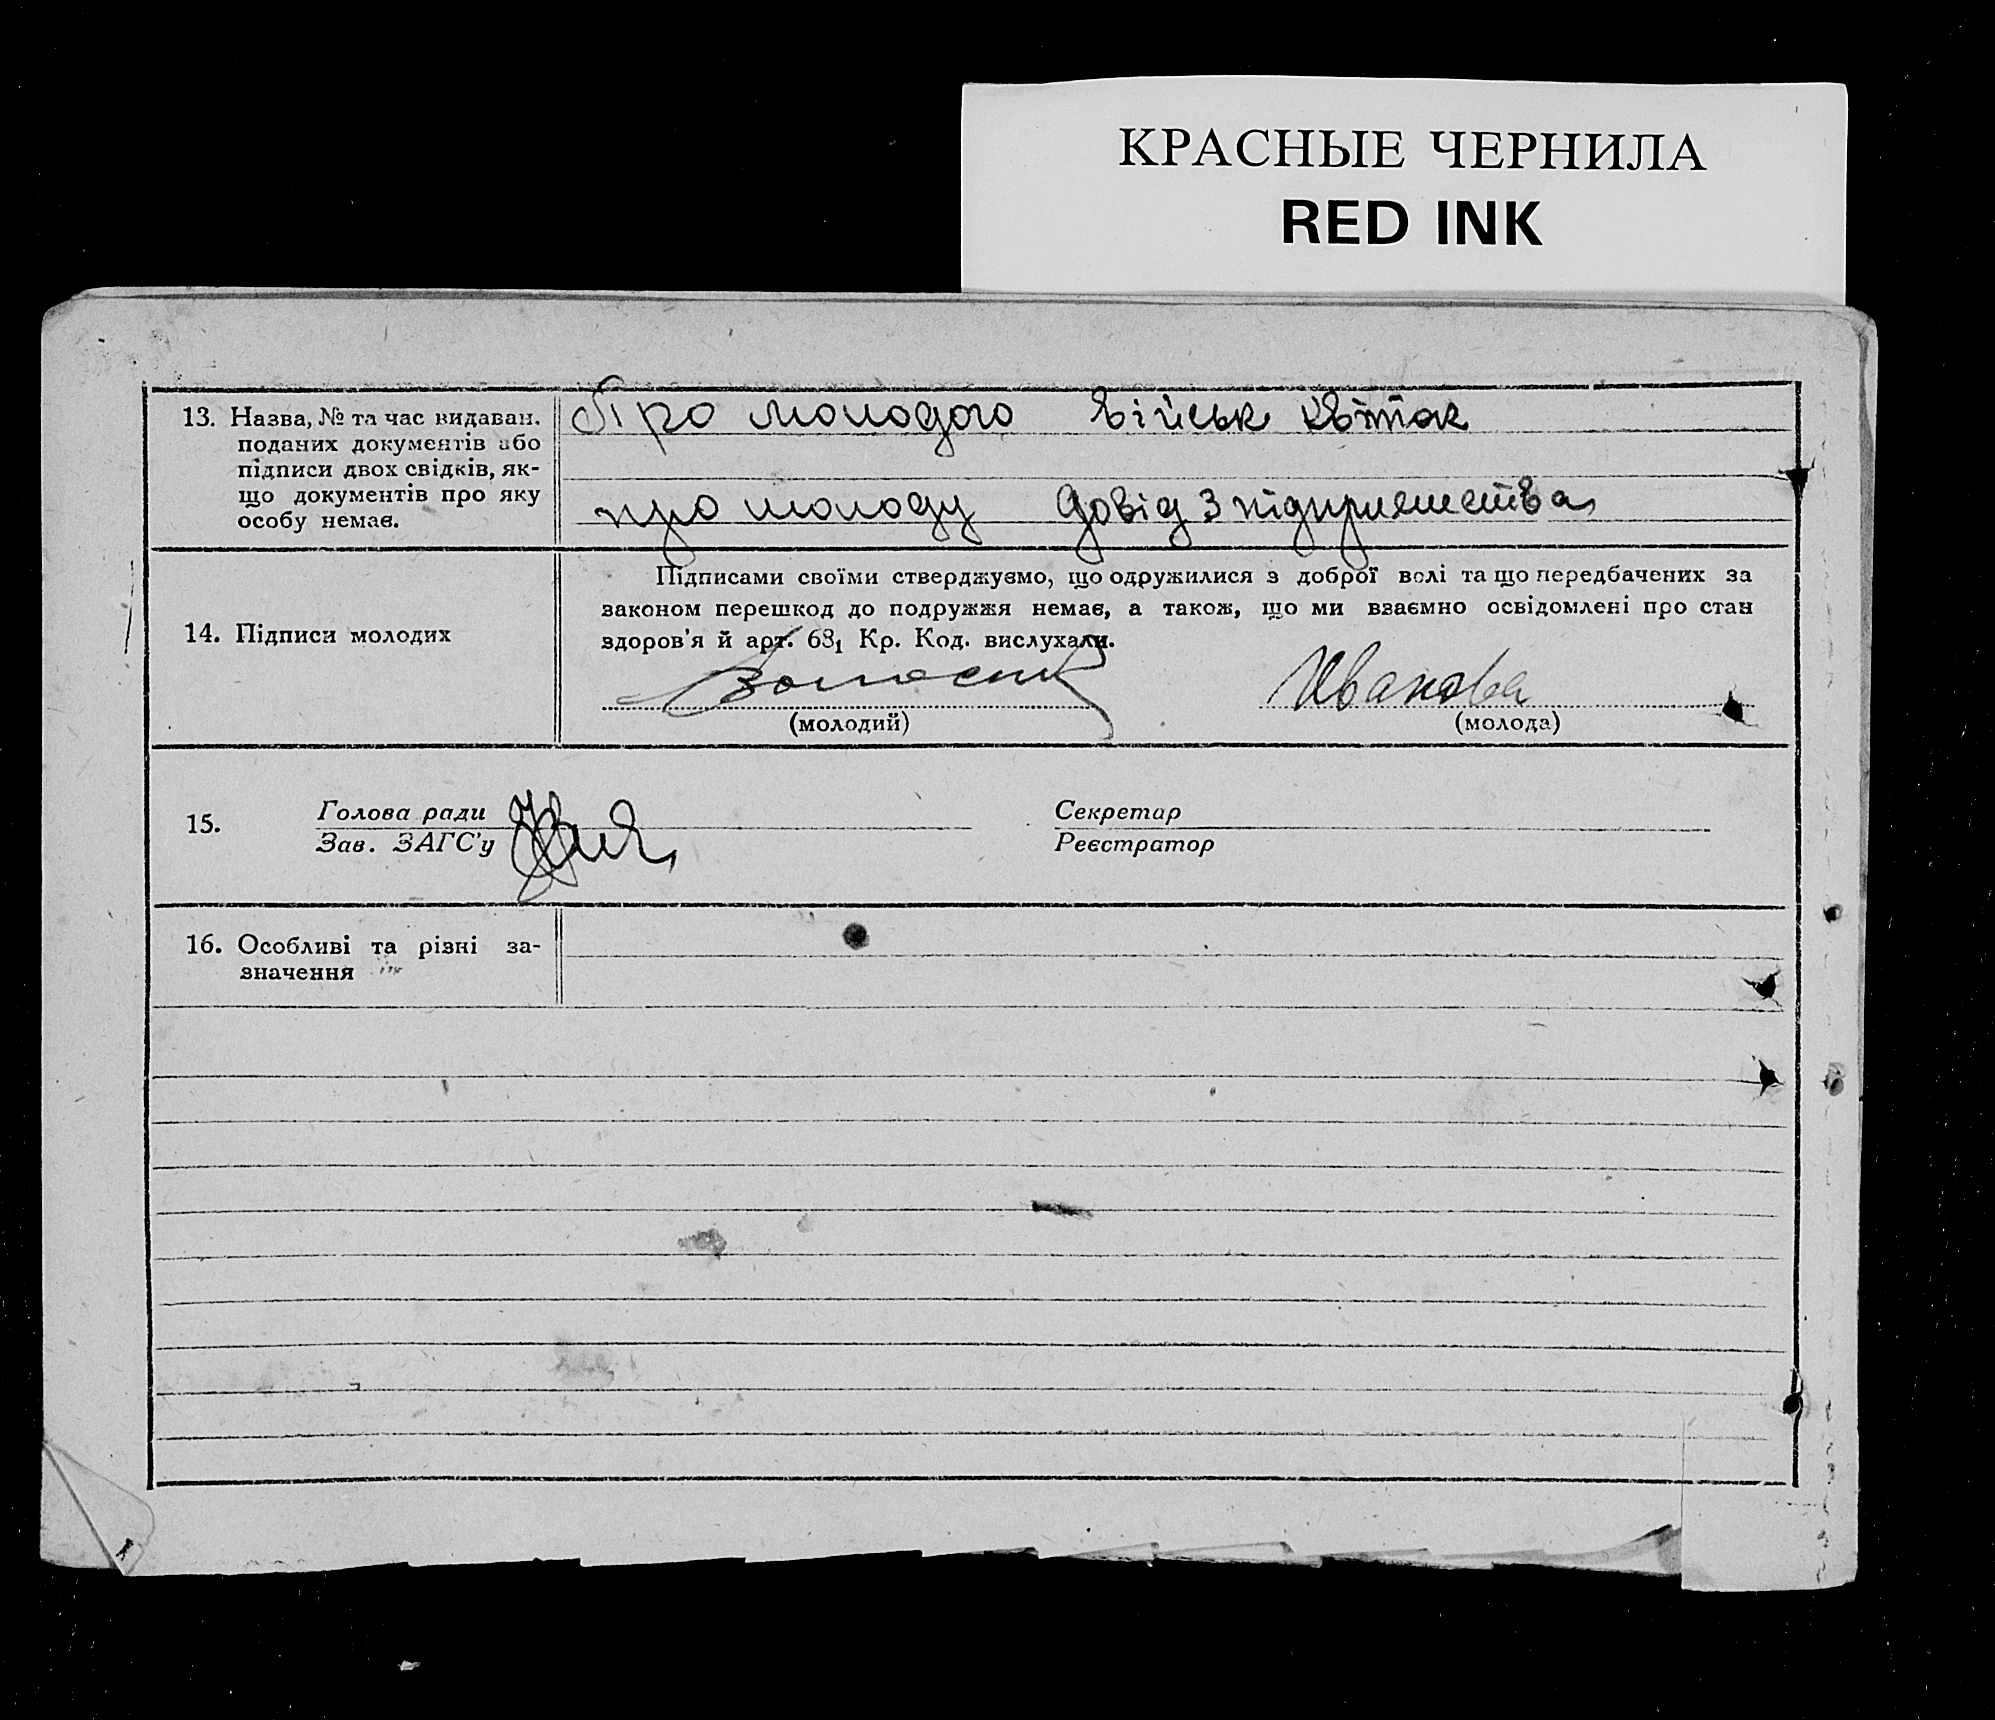 КРАСНЫЕ ЧЕРНИЛА
RED INK
13. Назва, № та час видаван.
поданих документів або
підписи двох свідків, як-
що документів про яку
особу немає.
Про молодого військ квиток
про молоду довід з підприємства
14. Підписи молодих
Підписами своїми стверджуємо, що одружилися з доброї волі та що передбачених за
законом перешкод до подружжя немає, а також, що ми взаємно освідомлені про стан
здоров'я й арт. 68₁ Кр. Код. вислухали.
Иванова
(молодий) (молода)
15. Голова ради Секретар
Зав. ЗАГС'у Реєстратор
16. Особливі та різні за-
значення